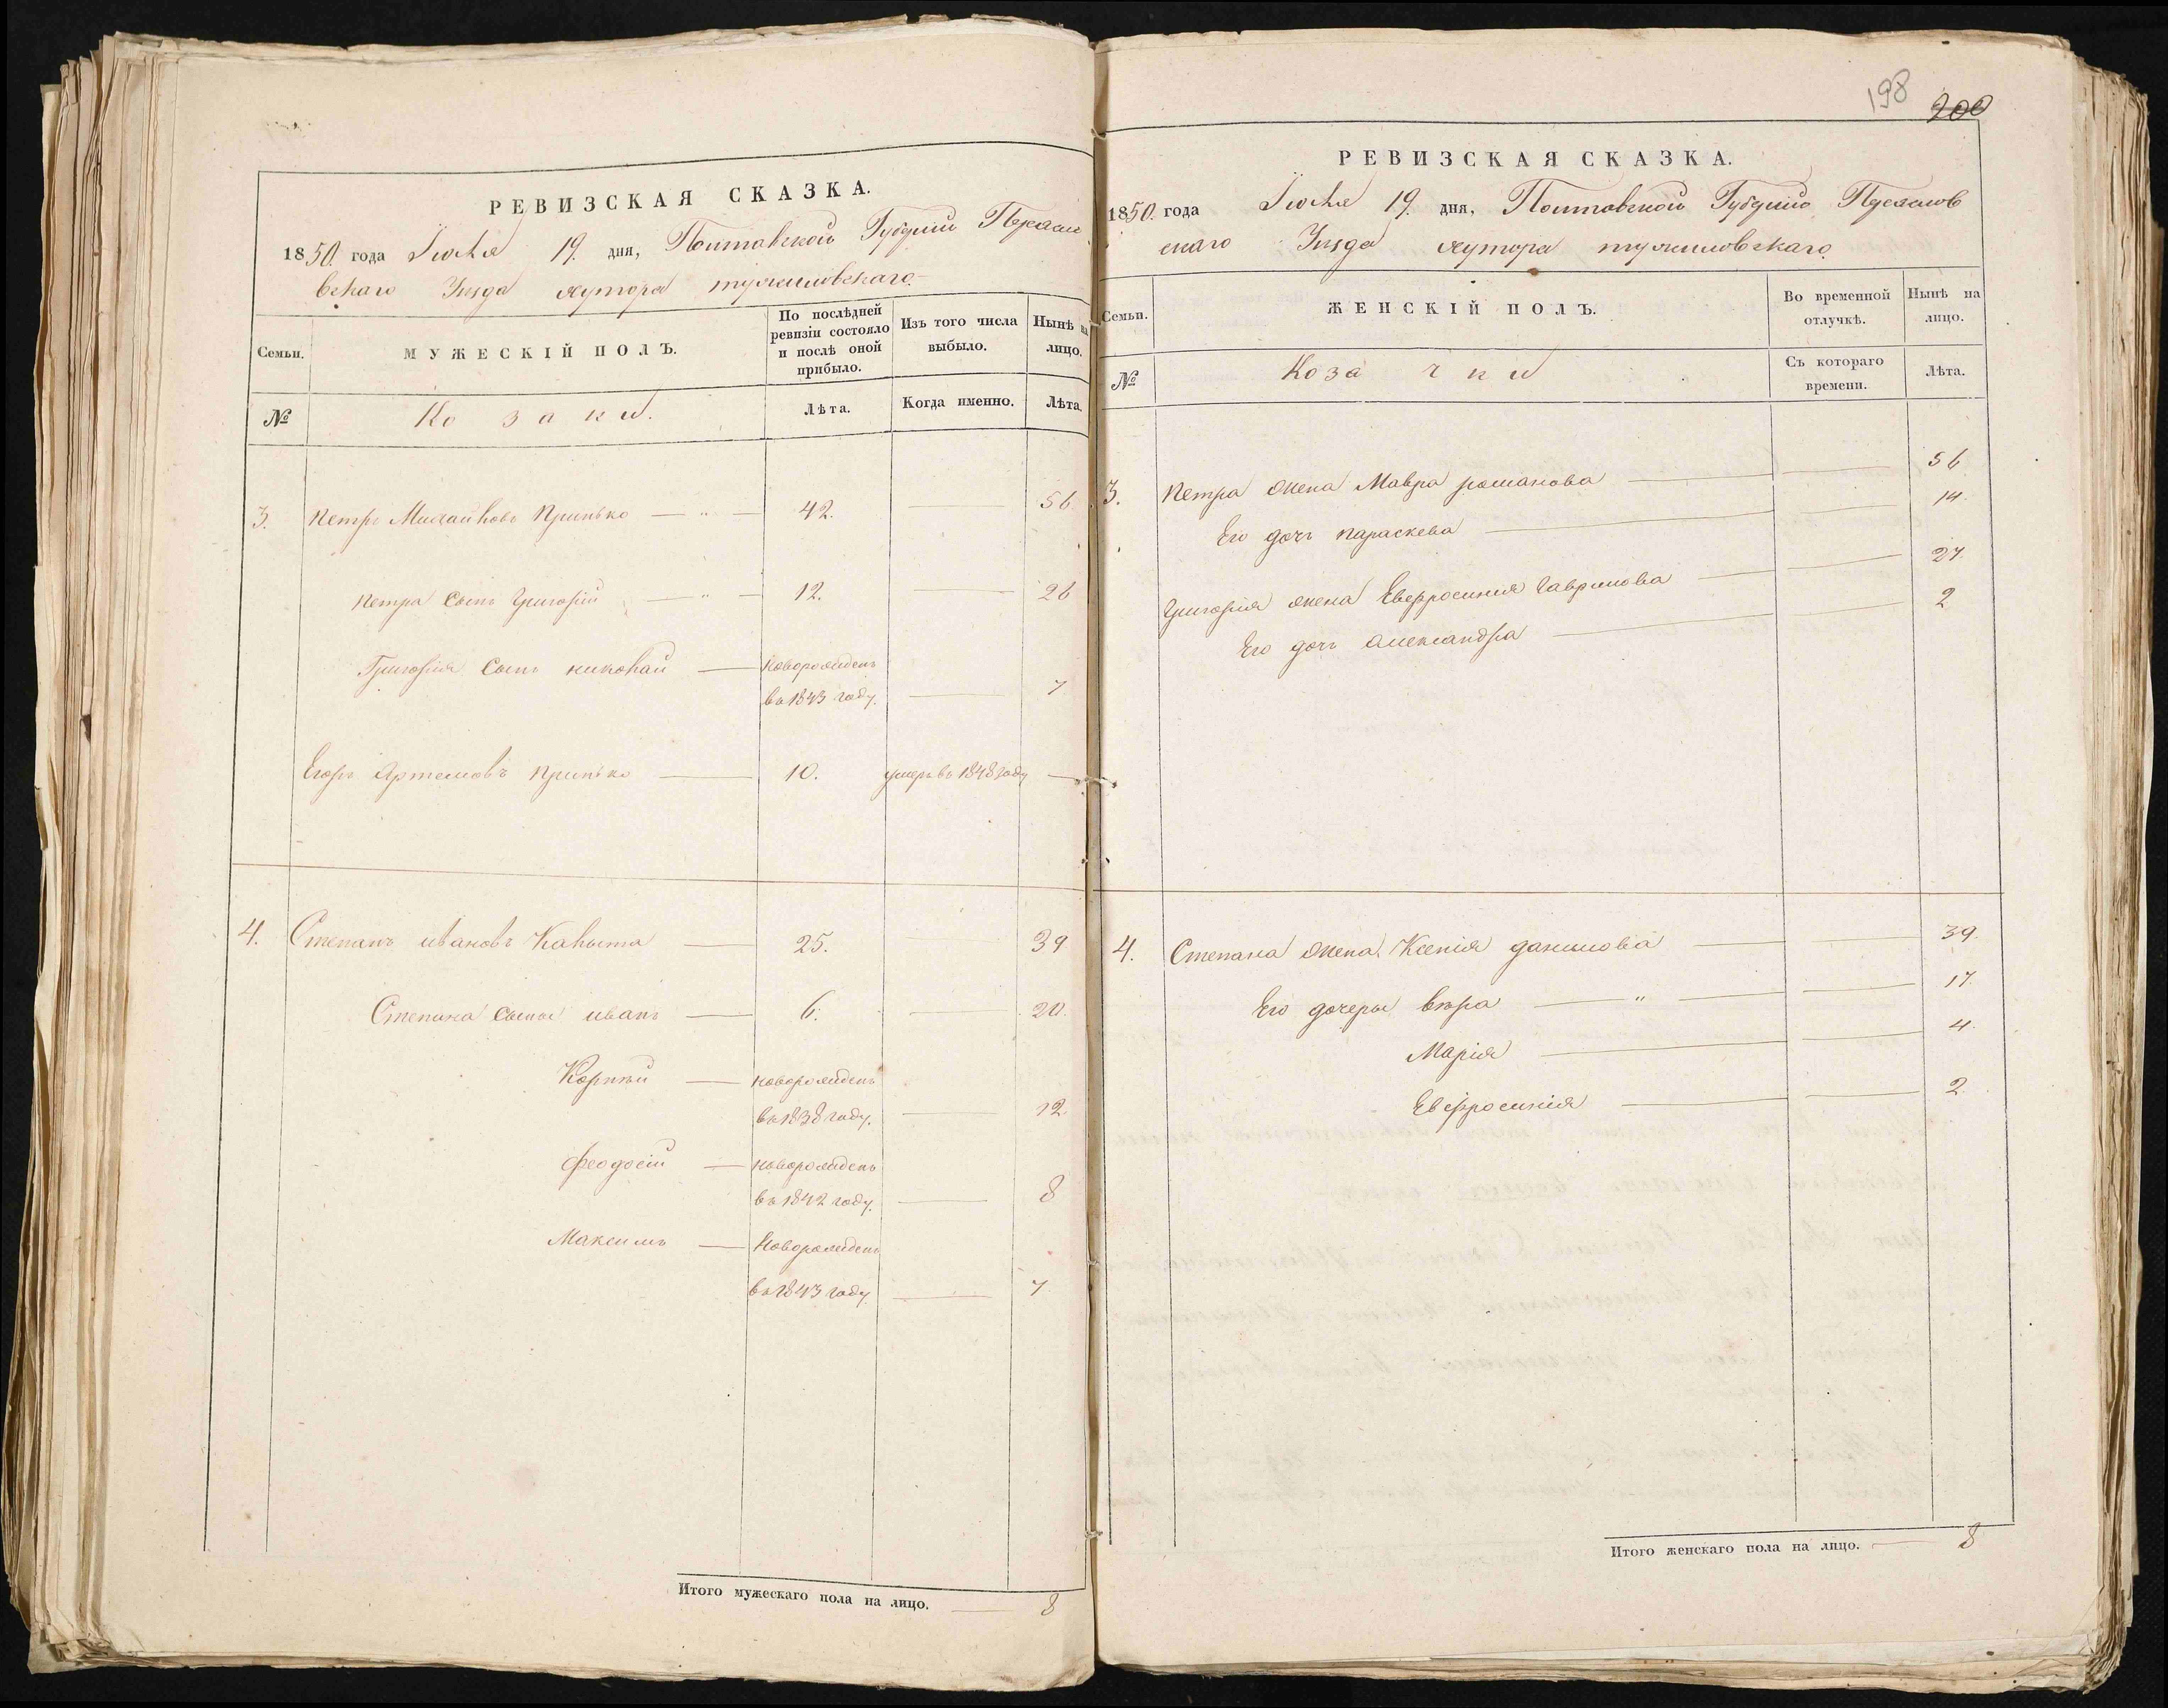 РЕВИЗСКАЯ СКАЗКА.
1850. года Іюля 19. дня, Полтавской Губерніи
вскаго Уѣзда хутора
Семьи.
МУЖЕСКІЙ ПОЛЪ.
По послѣдней ревизіи состояло и послѣ оной прибыло.
Изъ того числа выбыло.
Нынѣ на лицо.
№
Козаки.
Лѣта.
Когда именно.
Лѣта.
3. Петръ Михайловъ Припько — " — 42. — 56.
Петра сынъ Григорій — " — 12. — 26
Григорія сынъ николай — новорожденъ
въ 1843 году. — 7
Егоръ Артемовъ припько — 10. умеръ въ 1848 году —
4. Степанъ ивановъ Калыта — 25. 39
Степана сыны иванъ — 6. — 20.
Корнѣй — новорожденъ
въ 1838 году. — 12.
Феодосій — новорожденъ
въ 1842 году. — 8
Максимъ — Новорожденъ
въ 1843 году. — 7
Итого мужескаго пола на лицо. — 8
198
200
РЕВИЗСКАЯ СКАЗКА.
1850. года Іюля 19. дня, Полтавской Губерніи
скаго Уѣзда хутора
Семьи.
ЖЕНСКІЙ ПОЛЪ.
Во временной отлучкѣ.
Нынѣ на лицо.
№
Козачки
Съ котораго времени.
Лѣта.
3. Петра жена Мавра романова — — 56
Его дочь параскева — — 14.
Григорія жена Евфросинія Гаврилова — — 27.
Его дочь александра — — 2
4. Степана жена Ксенія данилова — — 39.
Его дочеры вѣра — " — — 17.
Марія — — 4.
Евфросинія — — 2.
Итого женскаго пола на лицо. — 8